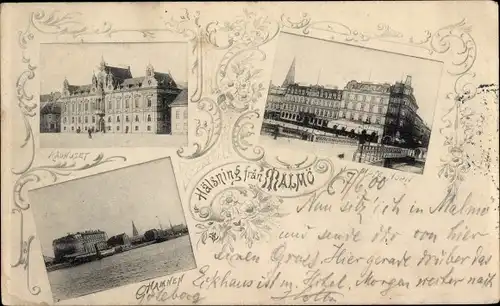 RÅDHUSET
Hälsning från MALMÖ
HAMNEN
7/6.00
Nun sitz ich in Malmö
und sende dir von hier
einen Gruß. Hier gerade drüber das
Eckhaus ist m. Hotel. Morgen weiter nach
Göteborg